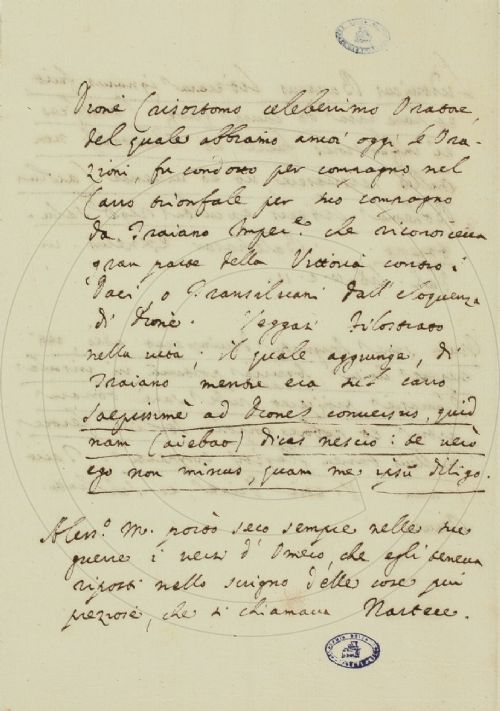 Dione Crisostomo celeberrimo Oratore,
del quale abbiamo ancor oggi le Ora-
zioni, fu condotto per compagno nel
Carro trionfale per suo compagno
da Traiano Imper.e che riconosceva
gran parte della Vittoria contro i
Daci, o Transilvani dall'eloquenza
di Dione. Veggasi Filostrato
nella vita; il quale aggiunge, che
Traiano mentre era sul carro
saepissimè ad Dionem conversus, quid
nam (aiebat) dicas nescio: te verò
ego non minus, quam me ipsum diligo.
Aless.o M. portò seco sempre nelle sue
guerre i versi d'Omero, che egli teneva
riposti nello scrigno delle cose più
preziose, che si chiamava Nartece.